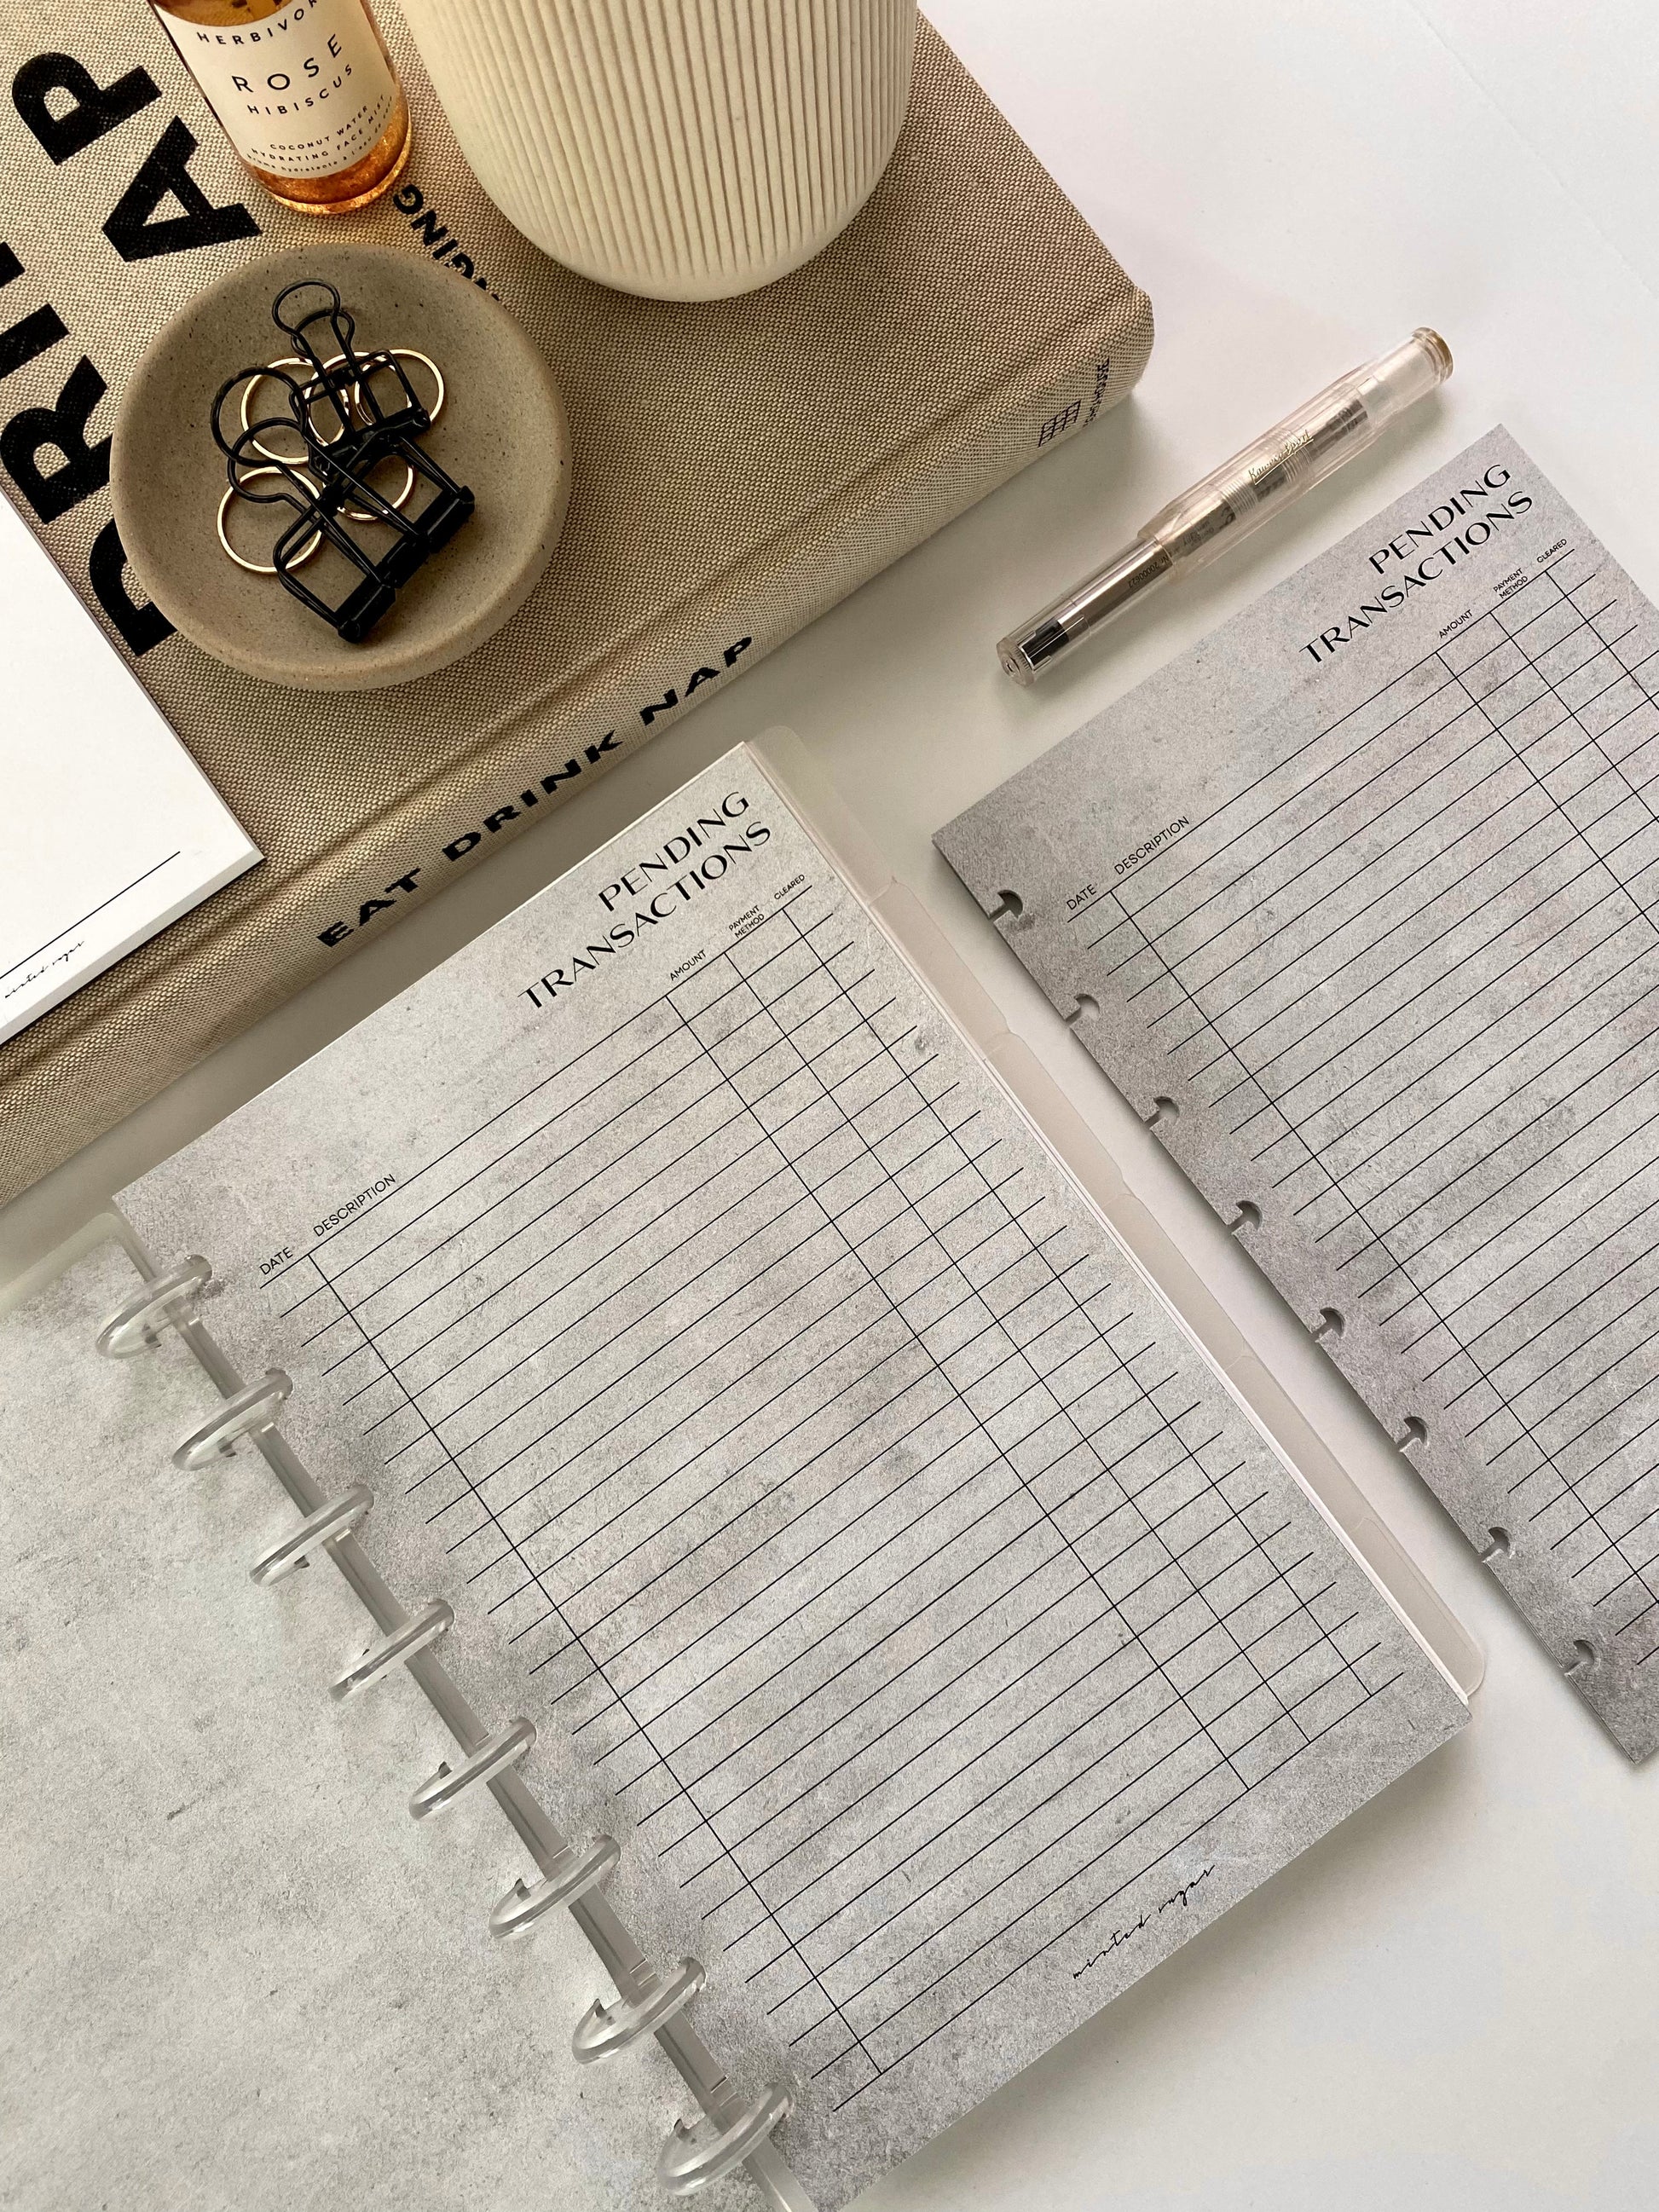 HERBIVOR
ROSE
HIBISCUS
COCONUT WATER
HYDRATING FACE MIST
DRINK
NAP
EAT DRINK NAP
Kaweco Sport
PENDING
TRANSACTIONS
DATE
DESCRIPTION
AMOUNT
PAYMENT
METHOD
CLEARED
minted sugar
PENDING
TRANSACTIONS
DATE
DESCRIPTION
AMOUNT
PAYMENT
METHOD
CLEARED